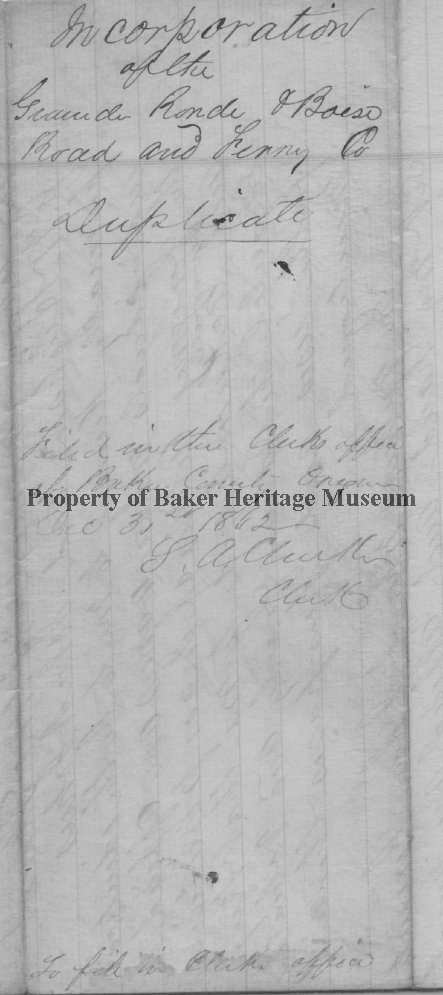 Incorporation
of the
Grande Ronde & Boise
Road and Ferry Co
Duplicate
Filed in the Clerks office
of Baker County Oregon
Property of Baker Heritage Museum
Dec 31 1862
Clerk
To file in Clerks office